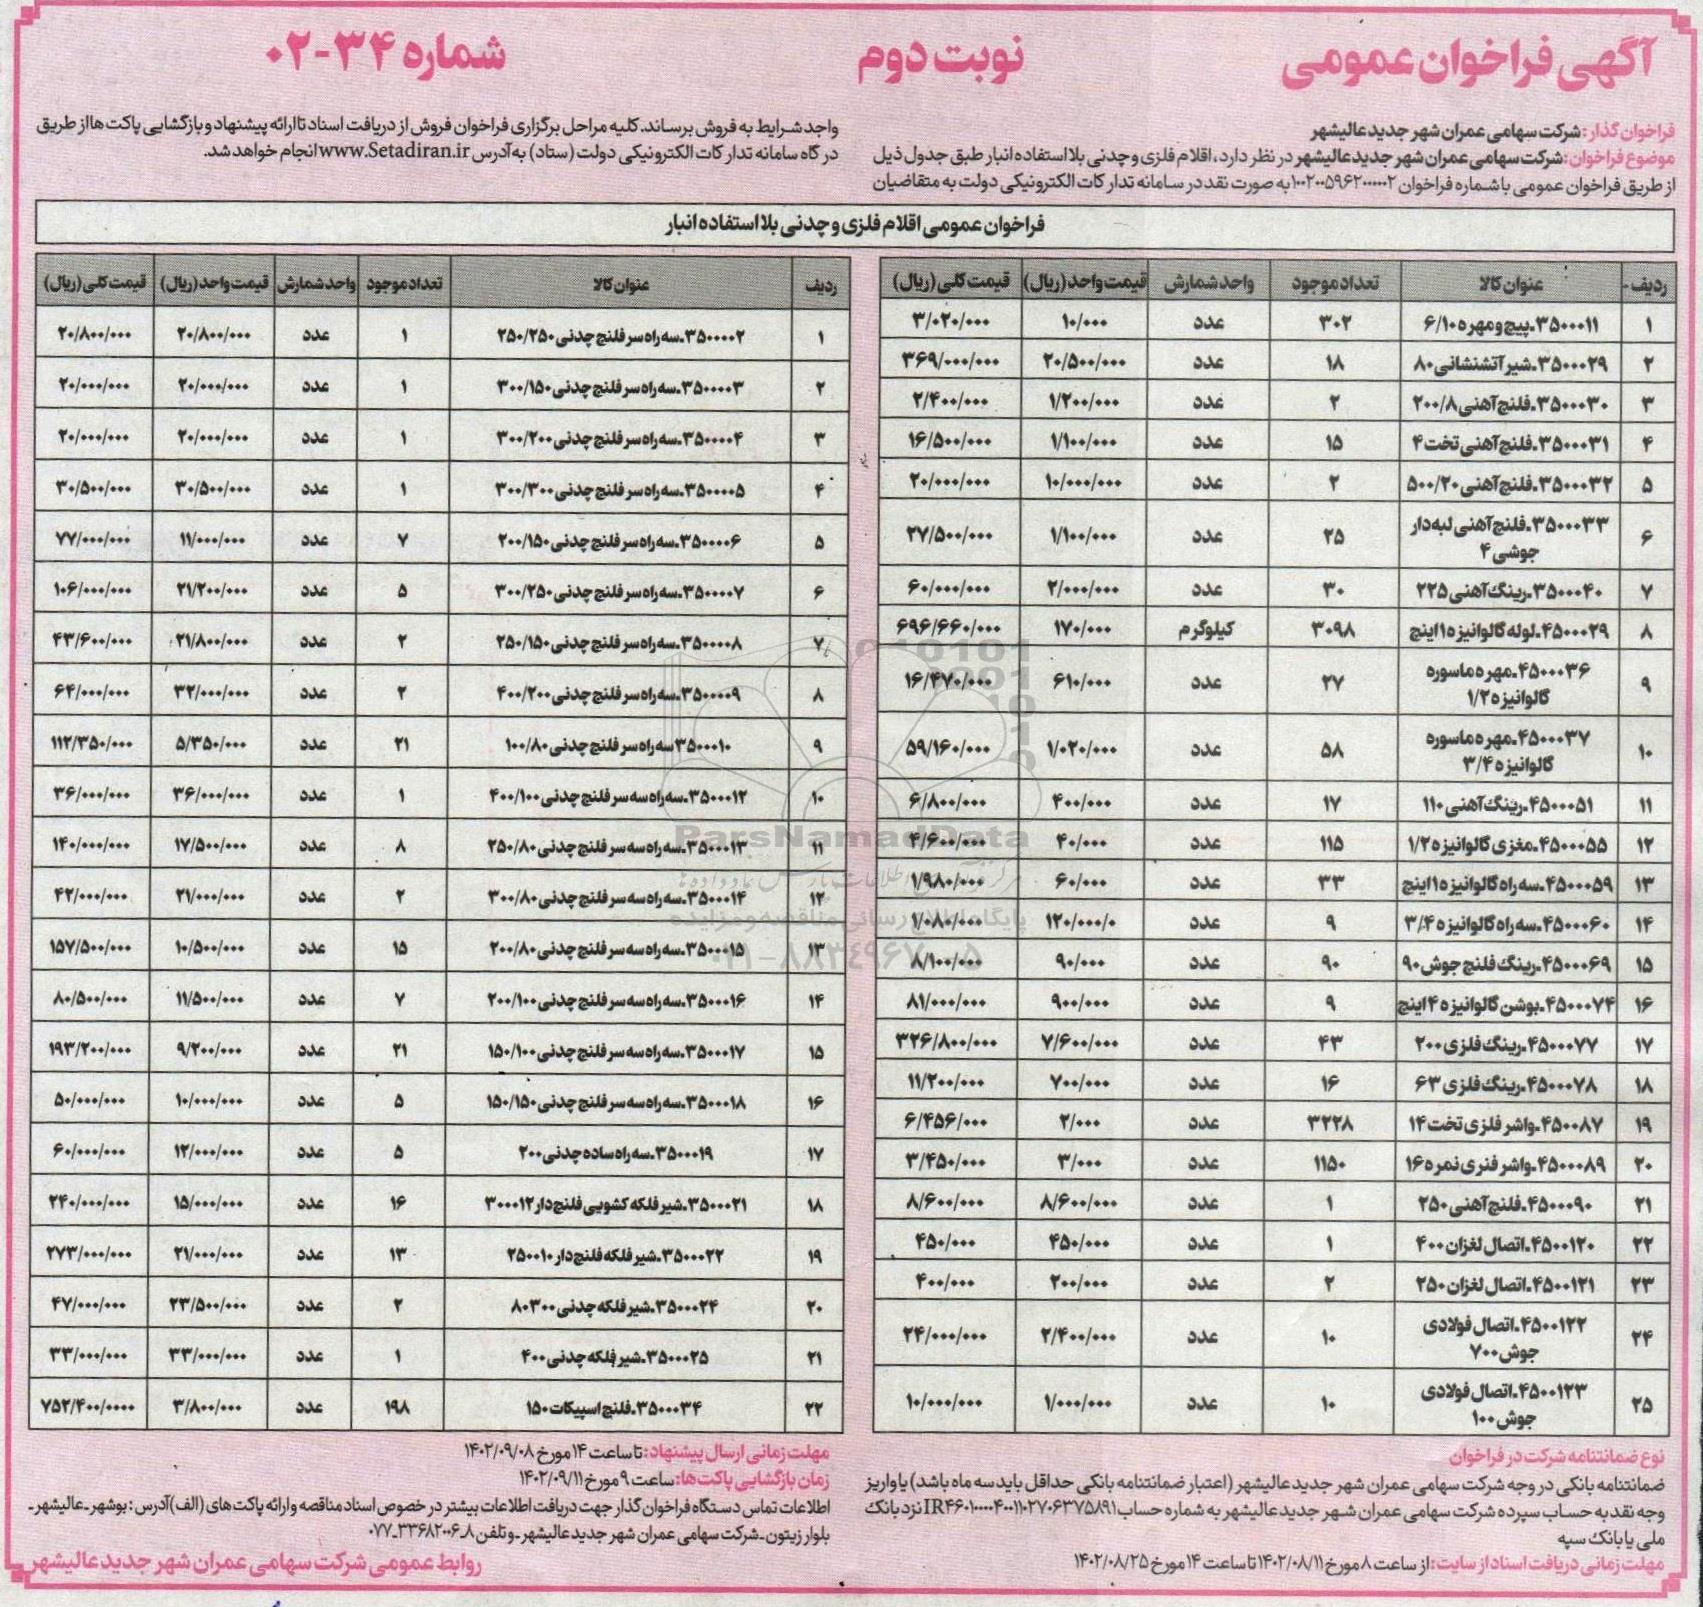 آگهی فراخوان عمومی
نوبت دوم
شماره ۳۴-۰۲
فراخوان گذار: شرکت سهامی عمران شهر جدید عالیشهر
موضوع فراخوان: شرکت سهامی عمران شهر جدید عالیشهر در نظر دارد، اقلام فلزی و چدنی بلااستفاده انبار طبق جدول ذیل
از طریق فراخوان عمومی با شماره فراخوان ۱۰۰۲۰۰۵۹۶۲۰۰۰۰۰۲ به صورت نقد در سامانه تدارکات الکترونیکی دولت به متقاضیان
واجد شرایط به فروش برساند. کلیه مراحل برگزاری فراخوان فروش از دریافت اسناد تا ارائه پیشنهاد و بازگشایی پاکت ها از طریق
درگاه سامانه تدارکات الکترونیکی دولت (ستاد) به آدرس www.Setadiran.ir انجام خواهد شد.
فراخوان عمومی اقلام فلزی و چدنی بلااستفاده انبار
ردیف عنوان کالا تعداد موجود واحد شمارش قیمت واحد (ریال) قیمت کلی (ریال)
۱ ۳۵۰۰۰۱۱-پیچ و مهره ۶/۱۰ ۳۰۲ عدد ۱۰/۰۰۰ ۳/۰۲۰/۰۰۰
۲ ۳۵۰۰۰۲۹-شیر آتشنشانی ۸۰ ۱۸ عدد ۲۰/۵۰۰/۰۰۰ ۳۶۹/۰۰۰/۰۰۰
۳ ۳۵۰۰۰۳۰-فلنج آهنی ۲۰۰/۸ ۲ عدد ۱/۲۰۰/۰۰۰ ۲/۴۰۰/۰۰۰
۴ ۳۵۰۰۰۳۱-فلنج آهنی تخت ۴ ۱۵ عدد ۱/۱۰۰/۰۰۰ ۱۶/۵۰۰/۰۰۰
۵ ۳۵۰۰۰۳۲-فلنج آهنی ۵۰۰/۲۰ ۲ عدد ۱۰/۰۰۰/۰۰۰ ۲۰/۰۰۰/۰۰۰
۶ ۳۵۰۰۰۳۳-فلنج آهنی لبه دار جوشی ۴ ۲۵ عدد ۱/۱۰۰/۰۰۰ ۲۷/۵۰۰/۰۰۰
۷ ۳۵۰۰۰۴۰-رینگ آهنی ۲۲۵ ۳۰ عدد ۲/۰۰۰/۰۰۰ ۶۰/۰۰۰/۰۰۰
۸ ۴۵۰۰۰۲۹-لوله گالوانیزه ۱ اینچ ۳۰۹۸ کیلوگرم ۱۷۰/۰۰۰ ۶۹۶/۶۶۰/۰۰۰
۹ ۴۵۰۰۰۳۶-مهره ماسوره گالوانیزه ۱/۲ ۲۷ عدد ۶۱۰/۰۰۰ ۱۶/۴۷۰/۰۰۰
۱۰ ۴۵۰۰۰۳۷-مهره ماسوره گالوانیزه ۳/۴ ۵۸ عدد ۱/۰۲۰/۰۰۰ ۵۹/۱۶۰/۰۰۰
۱۱ ۴۵۰۰۰۵۱-رینگ آهنی ۱۱۰ ۱۷ عدد ۴۰۰/۰۰۰ ۶/۸۰۰/۰۰۰
۱۲ ۴۵۰۰۰۵۵-مغزی گالوانیزه ۱/۲ ۱۱۵ عدد ۴۰/۰۰۰ ۴/۶۰۰/۰۰۰
۱۳ ۴۵۰۰۰۵۹-سه راه گالوانیزه ۱ اینچ ۳۳ عدد ۶۰/۰۰۰ ۱/۹۸۰/۰۰۰
۱۴ ۴۵۰۰۰۶۰-سه راه گالوانیزه ۳/۴ ۹ عدد ۱۲۰/۰۰۰/۰ ۱/۰۸۰/۰۰۰
۱۵ ۴۵۰۰۰۶۹-رینگ فلنج جوش ۹۰ ۹۰ عدد ۹۰/۰۰۰ ۸/۱۰۰/۰۰۰
۱۶ ۴۵۰۰۰۷۴-بوشن گالوانیزه ۴ اینچ ۹ عدد ۹۰۰/۰۰۰ ۸۱/۰۰۰/۰۰۰
۱۷ ۴۵۰۰۰۷۷-رینگ فلزی ۲۰۰ ۴۳ عدد ۷/۶۰۰/۰۰۰ ۳۲۶/۸۰۰/۰۰۰
۱۸ ۴۵۰۰۰۷۸-رینگ فلزی ۶۳ ۱۶ عدد ۷۰۰/۰۰۰ ۱۱/۲۰۰/۰۰۰
۱۹ ۴۵۰۰۸۷-واشر فلزی تخت ۱۴ ۳۲۲۸ عدد ۲/۰۰۰ ۶/۴۵۶/۰۰۰
۲۰ ۴۵۰۰۰۸۹-واشر فنری نمره ۱۶ ۱۱۵۰ عدد ۳/۰۰۰ ۳/۴۵۰/۰۰۰
۲۱ ۴۵۰۰۰۹۰-فلنج آهنی ۲۵۰ ۱ عدد ۸/۶۰۰/۰۰۰ ۸/۶۰۰/۰۰۰
۲۲ ۴۵۰۰۱۲۰-اتصال لغزان ۴۰۰ ۱ عدد ۴۵۰/۰۰۰ ۴۵۰/۰۰۰
۲۳ ۴۵۰۰۱۲۱-اتصال لغزان ۲۵۰ ۲ عدد ۲۰۰/۰۰۰ ۴۰۰/۰۰۰
۲۴ ۴۵۰۰۱۲۲-اتصال فولادی جوش ۷۰۰ ۱۰ عدد ۲/۴۰۰/۰۰۰ ۲۴/۰۰۰/۰۰۰
۲۵ ۴۵۰۰۱۲۳-اتصال فولادی جوش ۱۰۰ ۱۰ عدد ۱/۰۰۰/۰۰۰ ۱۰/۰۰۰/۰۰۰
ردیف عنوان کالا تعداد موجود واحد شمارش قیمت واحد (ریال) قیمت کلی (ریال)
۱ ۳۵۰۰۰۰۲-سه راه سر فلنج چدنی ۲۵۰/۲۵۰ ۱ عدد ۲۰/۸۰۰/۰۰۰ ۲۰/۸۰۰/۰۰۰
۲ ۳۵۰۰۰۰۳-سه راه سر فلنج چدنی ۳۰۰/۱۵۰ ۱ عدد ۲۰/۰۰۰/۰۰۰ ۲۰/۰۰۰/۰۰۰
۳ ۳۵۰۰۰۰۴-سه راه سر فلنج چدنی ۳۰۰/۲۰۰ ۱ عدد ۲۰/۰۰۰/۰۰۰ ۲۰/۰۰۰/۰۰۰
۴ ۳۵۰۰۰۰۵-سه راه سر فلنج چدنی ۳۰۰/۳۰۰ ۱ عدد ۳۰/۵۰۰/۰۰۰ ۳۰/۵۰۰/۰۰۰
۵ ۳۵۰۰۰۰۶-سه راه سر فلنج چدنی ۲۰۰/۱۵۰ ۷ عدد ۱۱/۰۰۰/۰۰۰ ۷۷/۰۰۰/۰۰۰
۶ ۳۵۰۰۰۰۷-سه راه سر فلنج چدنی ۳۰۰/۲۵۰ ۵ عدد ۲۱/۲۰۰/۰۰۰ ۱۰۶/۰۰۰/۰۰۰
۷ ۳۵۰۰۰۰۸-سه راه سر فلنج چدنی ۲۵۰/۱۵۰ ۲ عدد ۲۱/۸۰۰/۰۰۰ ۴۳/۶۰۰/۰۰۰
۸ ۳۵۰۰۰۰۹-سه راه سر فلنج چدنی ۴۰۰/۲۰۰ ۲ عدد ۳۲/۰۰۰/۰۰۰ ۶۴/۰۰۰/۰۰۰
۹ ۳۵۰۰۰۱۰سه راه سر فلنج چدنی ۱۰۰/۸۰ ۲۱ عدد ۵/۳۵۰/۰۰۰ ۱۱۲/۳۵۰/۰۰۰
۱۰ ۳۵۰۰۰۱۲-سه راه سه سر فلنج چدنی ۴۰۰/۱۰۰ ۱ عدد ۳۶/۰۰۰/۰۰۰ ۳۶/۰۰۰/۰۰۰
۱۱ ۳۵۰۰۰۱۳-سه راه سه سر فلنج چدنی ۲۵۰/۸۰ ۸ عدد ۱۷/۵۰۰/۰۰۰ ۱۴۰/۰۰۰/۰۰۰
۱۲ ۳۵۰۰۰۱۴-سه راه سه سر فلنج چدنی ۳۰۰/۸۰ ۲ عدد ۲۱/۰۰۰/۰۰۰ ۴۲/۰۰۰/۰۰۰
۱۳ ۳۵۰۰۰۱۵-سه راه سه سر فلنج چدنی ۲۰۰/۸۰ ۱۵ عدد ۱۰/۵۰۰/۰۰۰ ۱۵۷/۵۰۰/۰۰۰
۱۴ ۳۵۰۰۰۱۶-سه راه سه سر فلنج چدنی ۲۰۰/۱۰۰ ۷ عدد ۱۱/۵۰۰/۰۰۰ ۸۰/۵۰۰/۰۰۰
۱۵ ۳۵۰۰۰۱۷-سه راه سه سر فلنج چدنی ۱۵۰/۱۰۰ ۲۱ عدد ۹/۲۰۰/۰۰۰ ۱۹۳/۲۰۰/۰۰۰
۱۶ ۳۵۰۰۰۱۸-سه راه سه سر فلنج چدنی ۱۵۰/۱۵۰ ۵ عدد ۱۰/۰۰۰/۰۰۰ ۵۰/۰۰۰/۰۰۰
۱۷ ۳۵۰۰۰۱۹-سه راه ساده چدنی ۲۰۰ ۵ عدد ۱۲/۰۰۰/۰۰۰ ۶۰/۰۰۰/۰۰۰
۱۸ ۳۵۰۰۰۲۱-شیر فلکه کشویی فلنج دار ۳۰۰۰۱۲ ۱۶ عدد ۱۵/۰۰۰/۰۰۰ ۲۴۰/۰۰۰/۰۰۰
۱۹ ۳۵۰۰۰۲۲-شیر فلکه فلنج دار ۲۵۰۰۱۰ ۱۳ عدد ۲۱/۰۰۰/۰۰۰ ۲۷۳/۰۰۰/۰۰۰
۲۰ ۳۵۰۰۰۲۴-شیر فلکه چدنی ۸۰۳۰۰ ۲ عدد ۲۳/۵۰۰/۰۰۰ ۴۷/۰۰۰/۰۰۰
۲۱ ۳۵۰۰۰۲۵-شیر فلکه چدنی ۴۰۰ ۱ عدد ۳۳/۰۰۰/۰۰۰ ۳۳/۰۰۰/۰۰۰
۲۲ ۳۵۰۰۰۳۴-فلنج اسپیکات ۱۵۰ ۱۹۸ عدد ۳/۸۰۰/۰۰۰ ۷۵۲/۴۰۰/۰۰۰۰
نوع ضمانتنامه شرکت در فراخوان
ضمانتنامه بانکی در وجه شرکت سهامی عمران شهر جدید عالیشهر (اعتبار ضمانتنامه بانکی حداقل باید سه ماه باشد) یا واریز
وجه نقد به حساب سپرده شرکت سهامی عمران شهر جدید عالیشهر به شماره حساب نزد بانک
ملی یا بانک سپه
مهلت زمانی دریافت اسناد از سایت: از ساعت ۸ مورخ ۱۴۰۲/۰۸/۱۱ تا ساعت ۱۴ مورخ ۱۴۰۲/۰۸/۲۵
مهلت زمانی ارسال پیشنهاد: تا ساعت ۱۴ مورخ ۱۴۰۲/۰۹/۰۸
زمان بازگشایی پاکت ها: ساعت ۹ مورخ ۱۴۰۲/۰۹/۱۱
اطلاعات تماس دستگاه فراخوان گذار جهت دریافت اطلاعات بیشتر در خصوص اسناد مناقصه و ارائه پاکت های (الف) آدرس: بوشهر-عالیشهر-
بلوار زیتون-شرکت سهامی عمران شهر جدید عالیشهر-و تلفن ۸-۳۳۶۸۲۰۰۶-۰۷۷
روابط عمومی شرکت سهامی عمران شهر جدید عالیشهر
ParsNamadData
پایگاه اطلاع رسانی مناقصه و مزایده